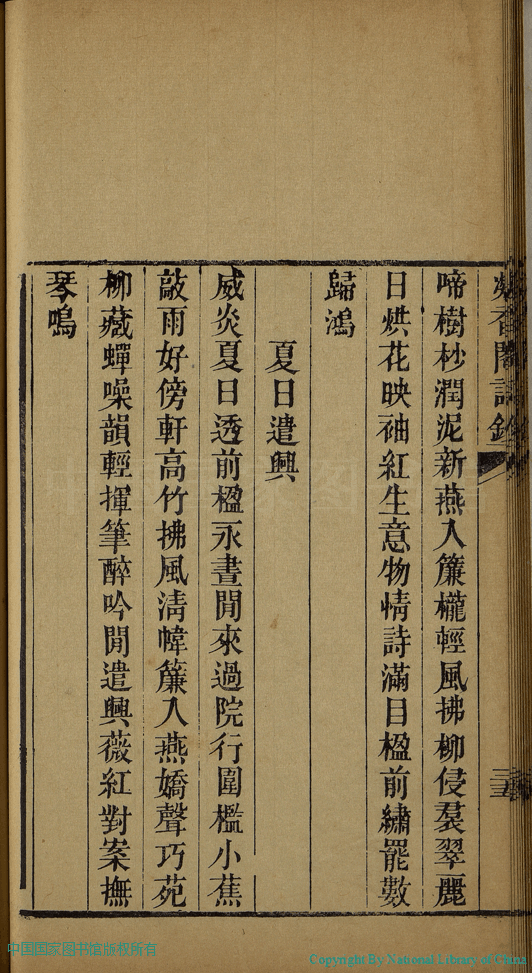 香閣詩鈔
啼樹杪潤泥新燕入簾櫳輕風拂柳侵裘翠麗
日烘花映袖紅生意物情詩滿目楹前繡罷數
歸鴻
夏日遣興
威炎夏日透前楹永晝閒來過院行圍檻小蕉
敲雨好傍軒高竹拂風清幃簾入燕嬌聲巧苑
柳藏蟬噪韻輕揮筆醉吟閒遣興薇紅對案撫
琴鳴
中国国家图书馆版权所有
Copyright By National Library of China